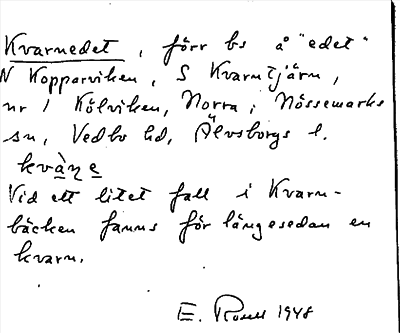 Kvarnedet, förr bs å "edet"
N Kopparviken, S Kvarntjärn,
nr 1 Kölviken, Norra, i Nössemarks
sn, Vedbo hd, Älvsborgs l.
Vid ett litet fall i Kvarn-
bäcken fanns för längesedan en
kvarn.
E. 1948